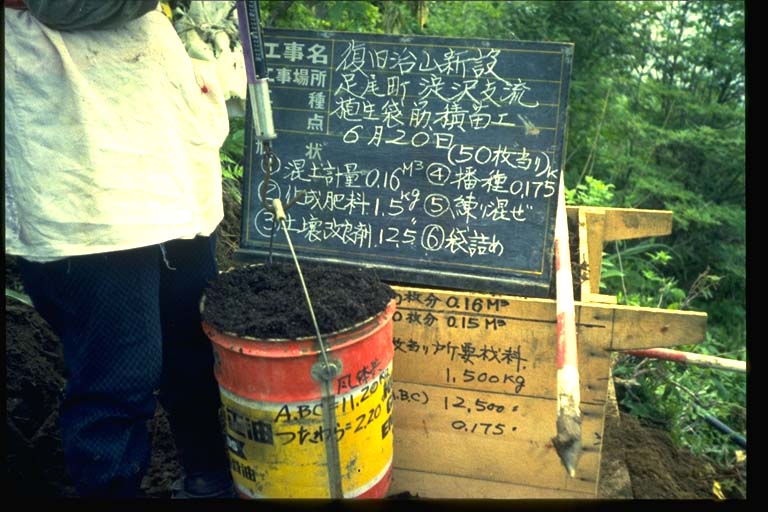 工事名 復旧治山新設
工事場所 足尾町 渋沢支流
種 植生袋筋積苗工
点 6月20日
状 (50枚当り)
① 混土計量 0.16M³ ④ 播種 0.175
② 化成肥料 1.5kg ⑤ 練り混ぜ
③ 土壌改良剤 12.5〃 ⑥ 袋詰め
枚分 0.16M³
0枚分 0.15M³
枚当り所要材料
1,500kg
A.B.C) 12,500〃
0.175〃
風体共
A.B.C=11.20Kg
つたわら=2.20
油